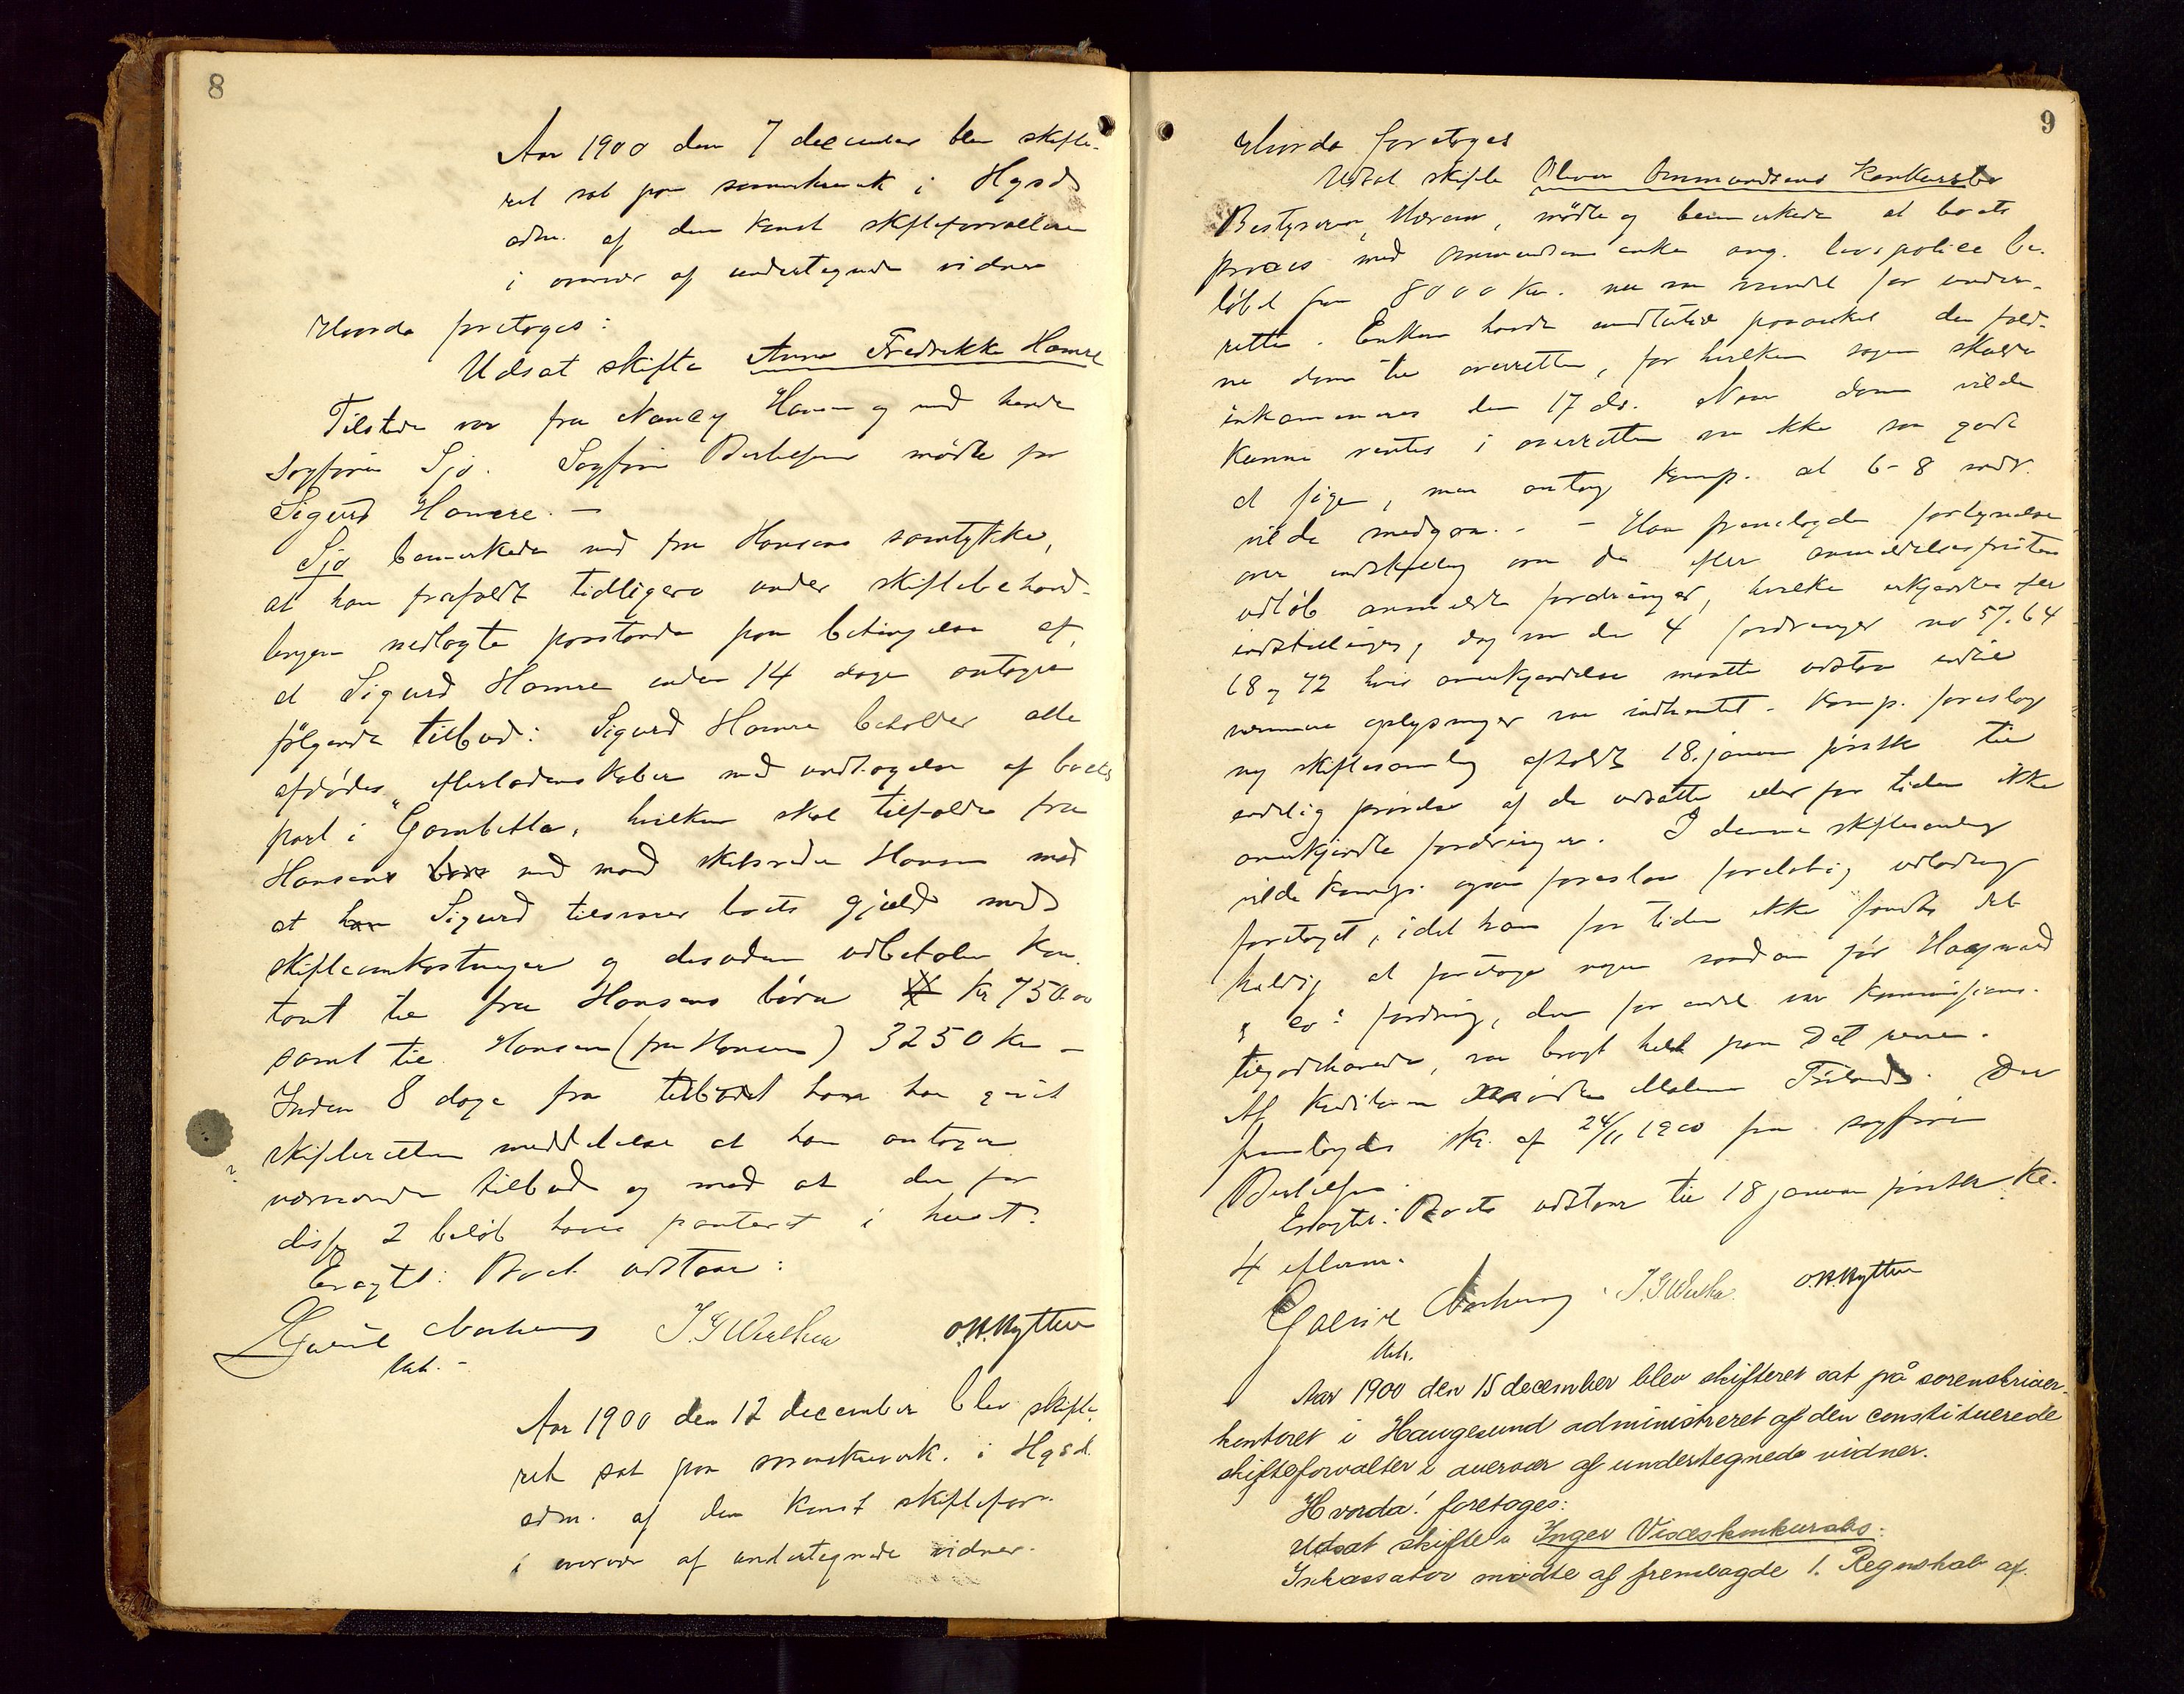 8
Aar 1900 den 7 december blev skifte-
ret sat paa sorenskriverk i Hgsd
adm. af den konst skifteforvalteren
i overvær af undertegnede vidner
Hvorda foretoges:
Udsat skifte Anna Fredrikke Hamre
Tilstede var fru Nancy Hansen og med hende
sagfører Sjo. Sagfører Bertelsen mødte for
Sigurd Hamre. -
Sjo bemerkede med fru Hansens samtykke,
at han frafaldt tidligere under skiftebehand-
lingen nedlagte paastande paa betingelse af,
at Sigurd Hamre inden 14 dage antager
følgende tilbud: Sigurd Hamre beholder alle
afdødes efterladenskaber med undtagelse af boets
part i "Gambetta", hvilken skal tilfalde fru
Hansens med mand skibsreder Hansen mod
at Sigurd tilsvarer boets gjæld med
skifteomkostninger og desuden udbetaler kon-
tant til fru Hansens børn kr 750.00
samt til Hansen (fru Hansen) 3250 kr -
Inden 8 dage fra tilbudet har han givet
skifteretten meddelelse at han antager
nærværende tilbud og mod at der for
disse 2 beløb haves panteret i huset.
Eragtet: Boet udstaar:
J G Wiethe O.H.Nytten
Aar 1900 den 12 december blev skifte-
ret sat paa sorenskriverk. i Hgsd.
adm. af den konst skiftefor.
i overvær af undertegnede vidner.
9
Hvorda foretoges
Udsat skifte Oliver Ommundsens konkursbo
Bestyreren, , mødte og bemerkede at boets
proces med Ommundsens enke ang. livspolice be-
løbet paa 8000 kr. nu var vundet for under-
retten. Enken havde imidlertid paaanket den fald-
ne dom til overretten, for hvilken sagen skulde
inkamineres den 17 ds. Naar dom vilde
kunne ventes i overretten var ikke saa godt
at sige, man antog komp. at 6-8 mdr.
vilde medgaa. - - Han fremlagde fortegnelse
over indstilling om de efter anmeldelsesfristens
udløb anmeldte fordringer, hvilke erkjendtes efter
indstillingen, dog var der 4 fordringer no 57, 64
68 og 72 hvis anerkjendelse maatte udstaa indtil
nærmere oplysninger var indhentet. Komp. foreslog
ny skiftesamling afholdt 18. januar førstk til
endelig prøvelse af de udsatte eller for tiden ikke
anerkjendte fordringer. I denne skiftesamling
vilde komp. ogsaa foreslaa foreløbig udlodning
foretaget, idet han for tiden ikke fandt det
heldig at foretage nogen saadan før
& co's fordring, der for endel var kommissions-
tilgodehavende, var bragt helt paa det rene.
Af kreditorer mødte Malene . Der
fremlagdes skr. af 24/11 1900 fra sagfører
Bertelsen.
Eragtet: Boet udstaar til 18 januar førstk kl.
4 efterm.
J. G Wiethe O.H.Nytten
Aar 1900 den 15 december blev skifteret sat på sorenskriver-
kontoret i Haugesund administreret af den constituerede
skifteforvalter i overvær af undertegnede vidner.
Hvorda! foretoges:
Udsat skifte i Inger Visæs konkursbo:
Inkassator mødte af fremlagde 1. Regnskab af